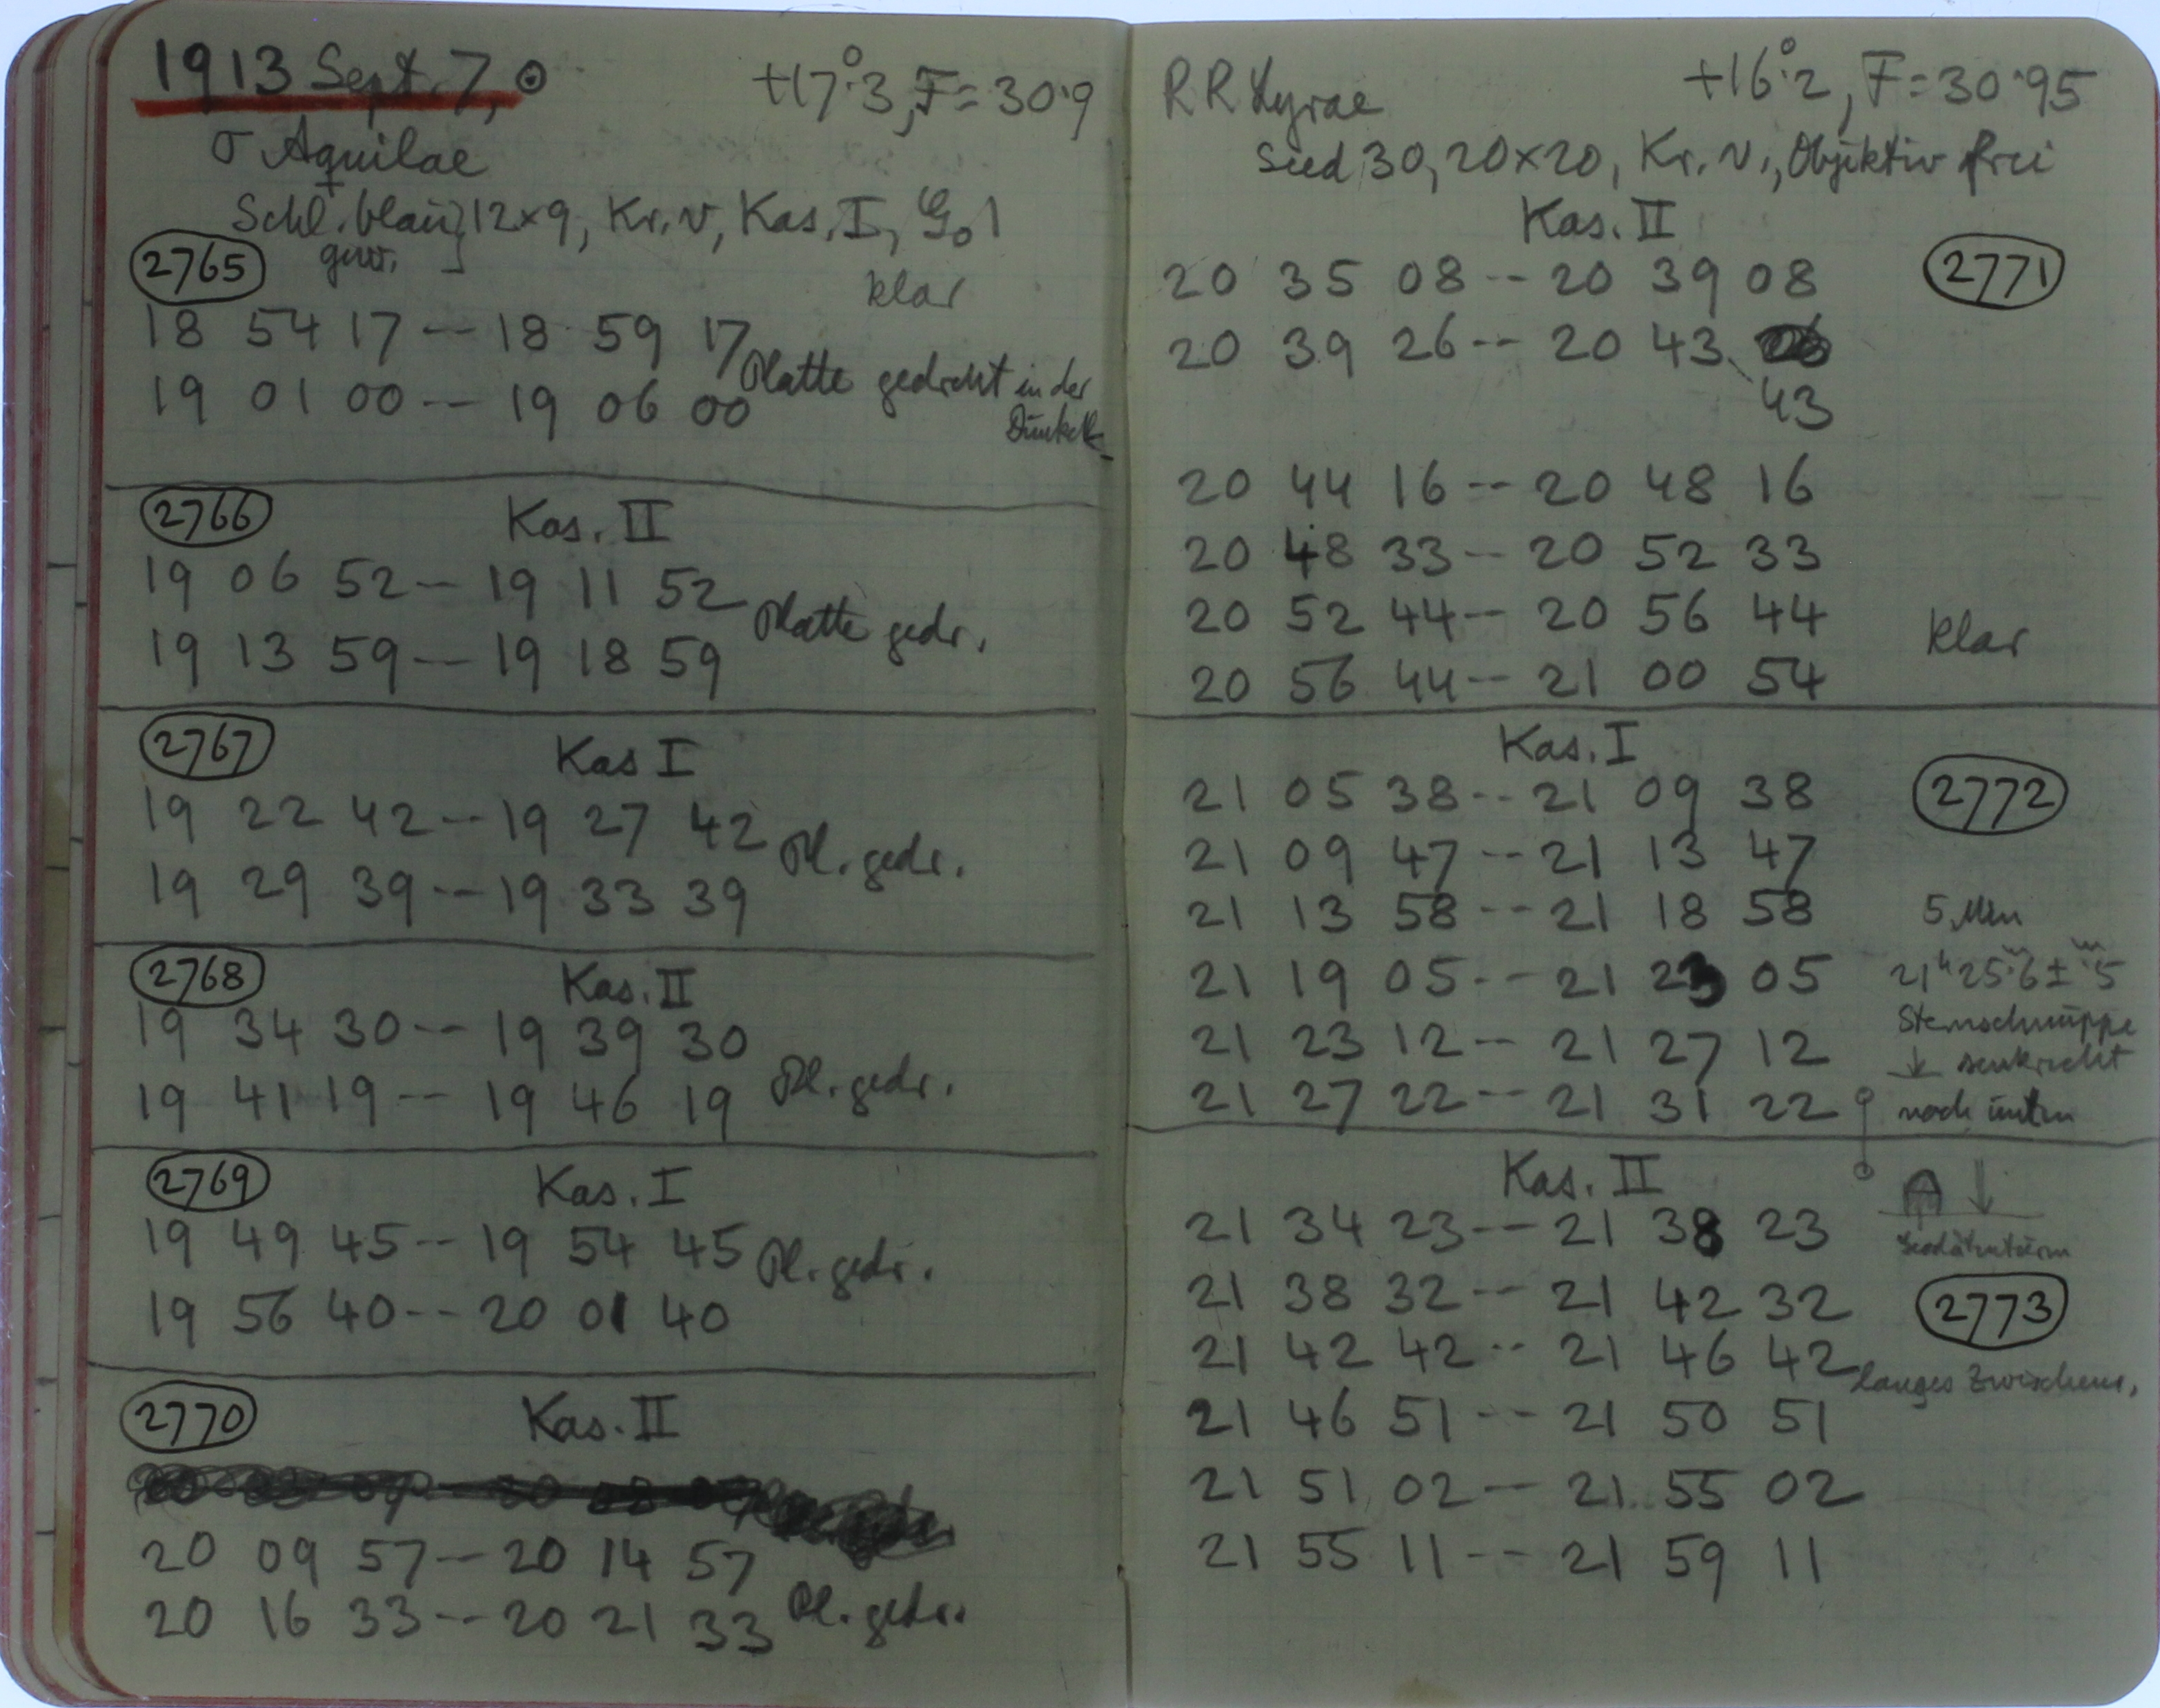 1913 Sept. 7, ⊙ +17°.3, F = 30.9
σ Aquilae
Schl. blau 12×9, Kr. v, Kas. I, G₀ 1
gew.
2765 klar
18 54 17 -- 18 59 17
Platte gedreht in der
Dunkelk.
19 01 00 -- 19 06 00
2766 Kas. II
19 06 52 -- 19 11 52
Platte gedr.
19 13 59 -- 19 18 59
2767 Kas I
19 22 42 -- 19 27 42
Pl. gedr.
19 29 39 -- 19 33 39
2768 Kas. II
19 34 30 -- 19 39 30
Pl. gedr.
19 41 19 -- 19 46 19
2769 Kas. I
19 49 45 -- 19 54 45
Pl. gedr.
19 56 40 -- 20 01 40
2770 Kas. II
20 09 57 -- 20 14 57
20 16 33 -- 20 21 33 Pl. gedr.
RR Lyrae +16°.2, F = 30.95
Seed 30, 20×20, Kr. v., Objektiv frei
Kas. II
20 35 08 -- 20 39 08 2771
20 39 26 -- 20 43
43
20 44 16 -- 20 48 16
20 48 33 -- 20 52 33
20 52 44 -- 20 56 44 klar
20 56 44 -- 21 00 54
Kas. I
21 05 38 -- 21 09 38 2772
21 09 47 -- 21 13 47
21 13 58 -- 21 18 58 5 Min
21 19 05 -- 21 23 05 21ʰ 25ᵐ.6 ± ᵐ.5
Sternschnuppe
21 23 12 -- 21 27 12 ↓ senkrecht
21 27 22 -- 21 31 22 nach unten
Kas. II
21 34 23 -- 21 38 23
21 38 32 -- 21 42 32 2773
21 42 42 -- 21 46 42 langes Zwischenr.
21 46 51 -- 21 50 51
21 51 02 -- 21 55 02
21 55 11 -- 21 59 11